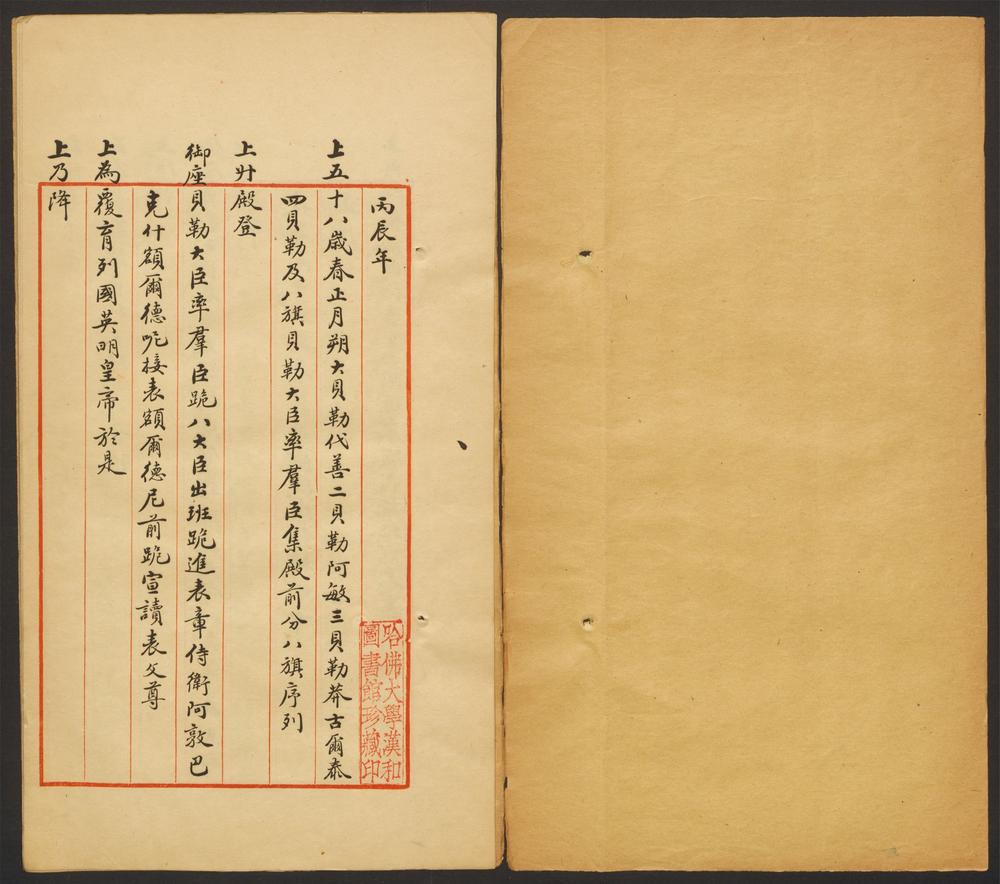 丙辰年
上五十八歲春正月朔大貝勒代善二貝勒阿敏三貝勒莽古爾泰
四貝勒及八旗貝勒大臣率羣臣集殿前分八旗序列
上升殿登
御座貝勒大臣率羣臣跪八大臣出班跪進表章侍衛阿敦巴
克什額爾德呢接表額爾德尼前跪宣讀表文尊
上為覆育列國英明皇帝於是
上乃降
哈佛大學漢和
圖書館珍藏印